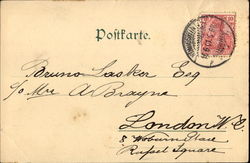 Postkarte.
10
Bruno Lasker Esq
c/o Mrs A Brayne
London W.C
8 Woburn Place
Russel Square